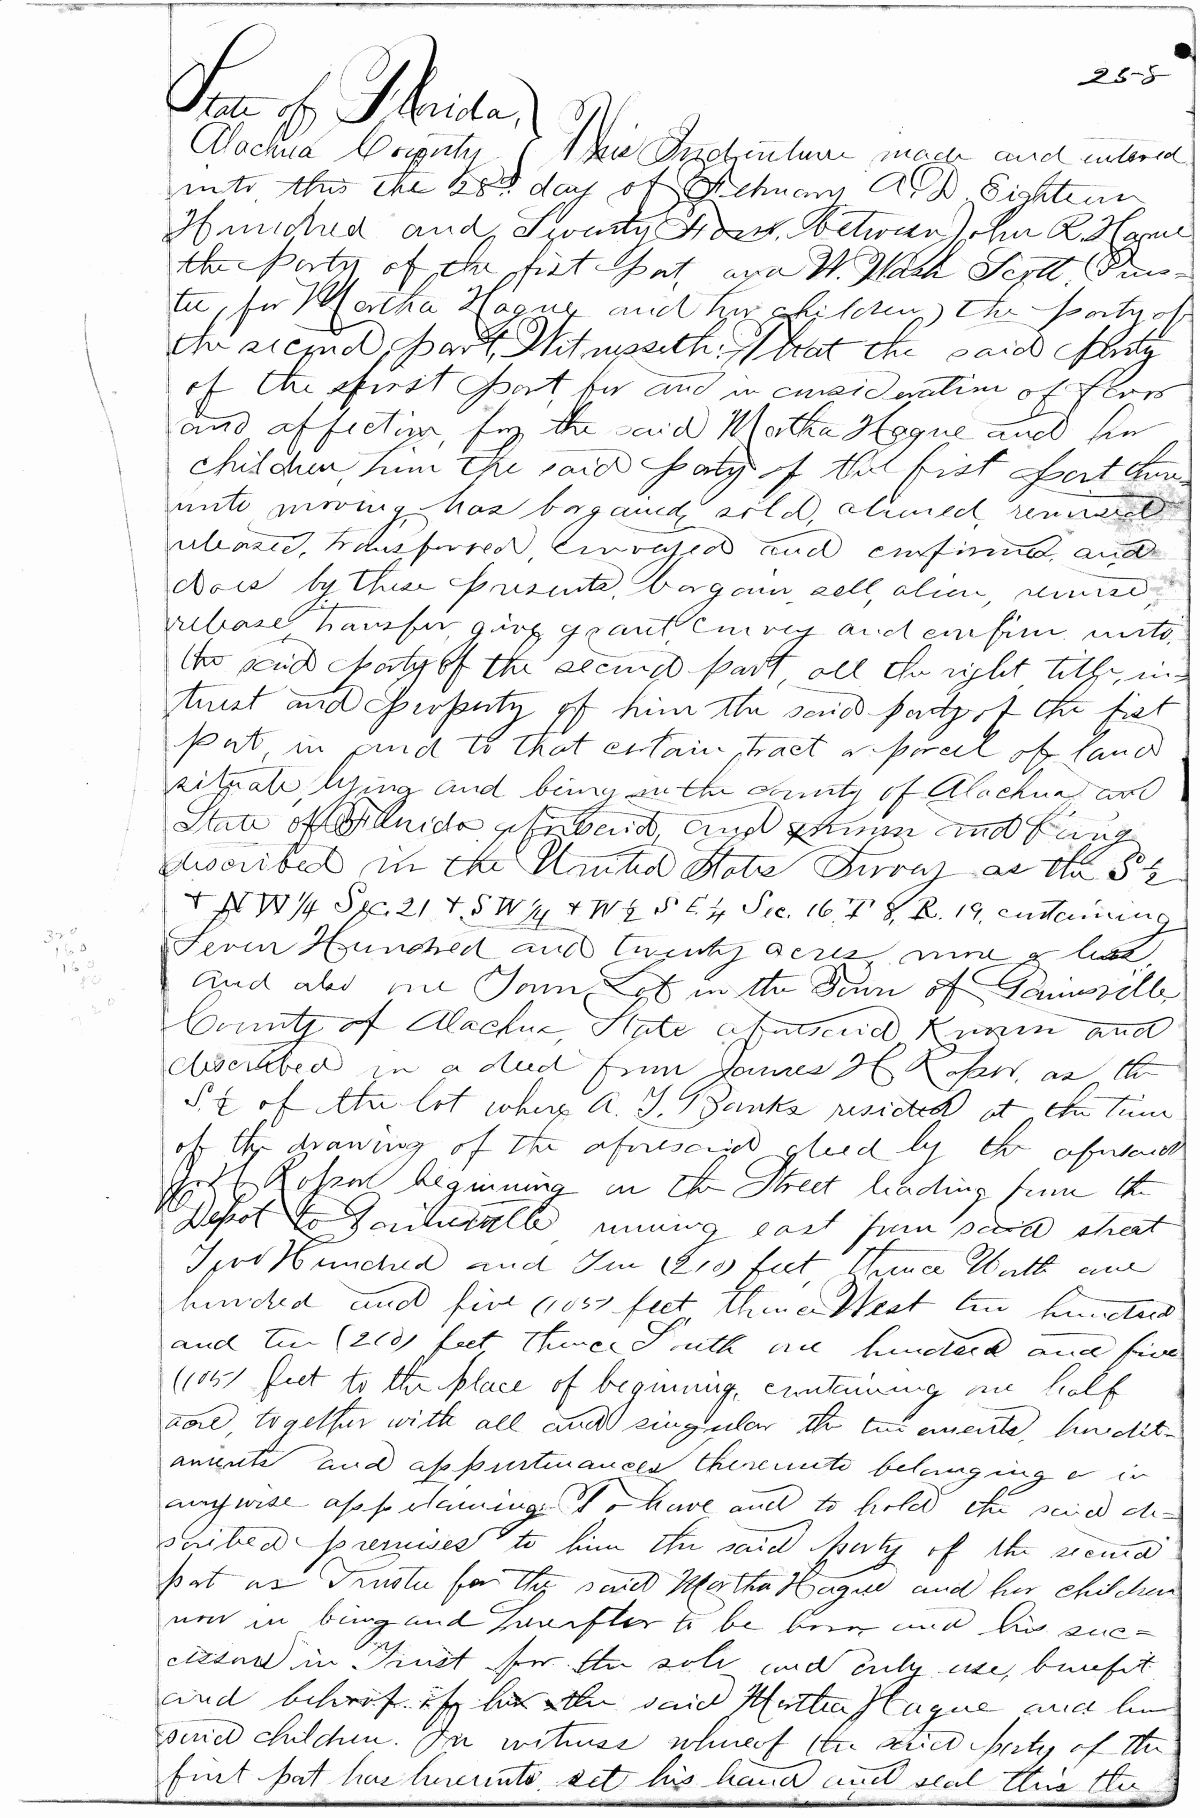 258
State of Florida,
Alachua County } This Indenture made and entered
into this the 28th day of February A.D. Eighteen
Hundred and Seventy Four, between John R. Hague
the party of the fist part, and W. Wash Scott, (Trus=
tee, for Martha Hague and her children) the party of
the second part, Witnesseth: That the said party
of the first part for and in consideration of
and affection, for the said Martha Hague and her
children, him the said party of the fist part there=
unto moving, has bargained, sold, aliened, remised
released, transferred, conveyed and confirmed, and
does by these presents, bargain, sell, alien, remise,
release, transfer, give, grant, convey and confirm unto,
the said party of the second part, all the right, title, in=
terest and property of him the said party of the fist
part, in and to that certain tract or parcel of land
situate, lying and being in the county of Alachua, and
State of Florida aforesaid, and known and being
discribed in the United States Survay as the S ½
+ N W ¼ Sec. 21 + S W ¼ + W ½ S E ¼ Sec. 16, T 8, R. 19, containing
Seven Hundred and twenty acres, more or less,
and also one Town Lot in the Town of Gainesville
County of Alachua, State aforesaid, Known and
discribed in a deed from James H Roper, as the
S. ½ of the lot where A. J. Banks resided at the time
of the drawing of the aforesaid deed by the aforesaid
Roper beginning on the Street leading from the
Depot to Gainesville, running east from said street
Two Hundred and Ten (210) feet, thence North one
hundred and five (105) feet, thence West two hundred
and ten (210) feet, thence South one hundred and five
(105) feet to the place of beginning, containing one half
acre, together with all and singular the tenements, heredit=
aments and appurtenances thereunto belonging or in
anywise appertaining. To have and to hold the said de=
scribed premises to him the said party of the second
part as Trustee for the said Martha Hague and her children
now in being and hereafter to be born and his suc=
cessors in Trust for the sole and only use, benefit
and behoof of her the said Martha Hague and her
said children. In witness whereof the said party of the
first part has hereunto set his hand and seal this the